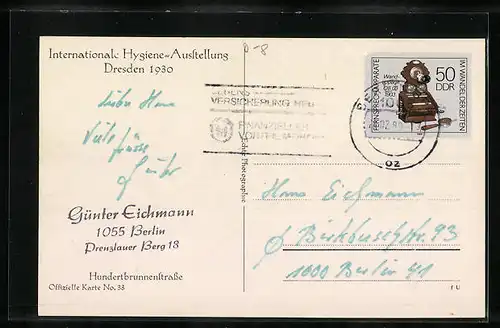 International: Hygiene-Ausstellung
Dresden 1930
D-8
Liebe Hans
Viele
Grüsse
Günter
Günter Eichmann
1055 Berlin
Prenzlauer Berg 18
Hundertbrunnenstraße
Offizielle Karte No. 38
LEBENS
VERSICHERUNG NEU
FINANZIELLER
VORTEIL
Photographie
FERNSPRECHAPPARATE
Wand-
apparat
1901
50
DDR
IM WANDEL DER ZEITEN
oz
Hans Eichmann
Birkbuschstr. 93
1000 Berlin 41
F U